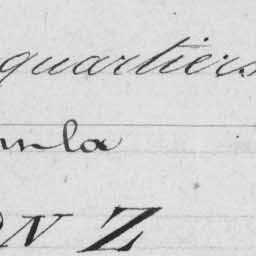 quartiers
la
ON Z